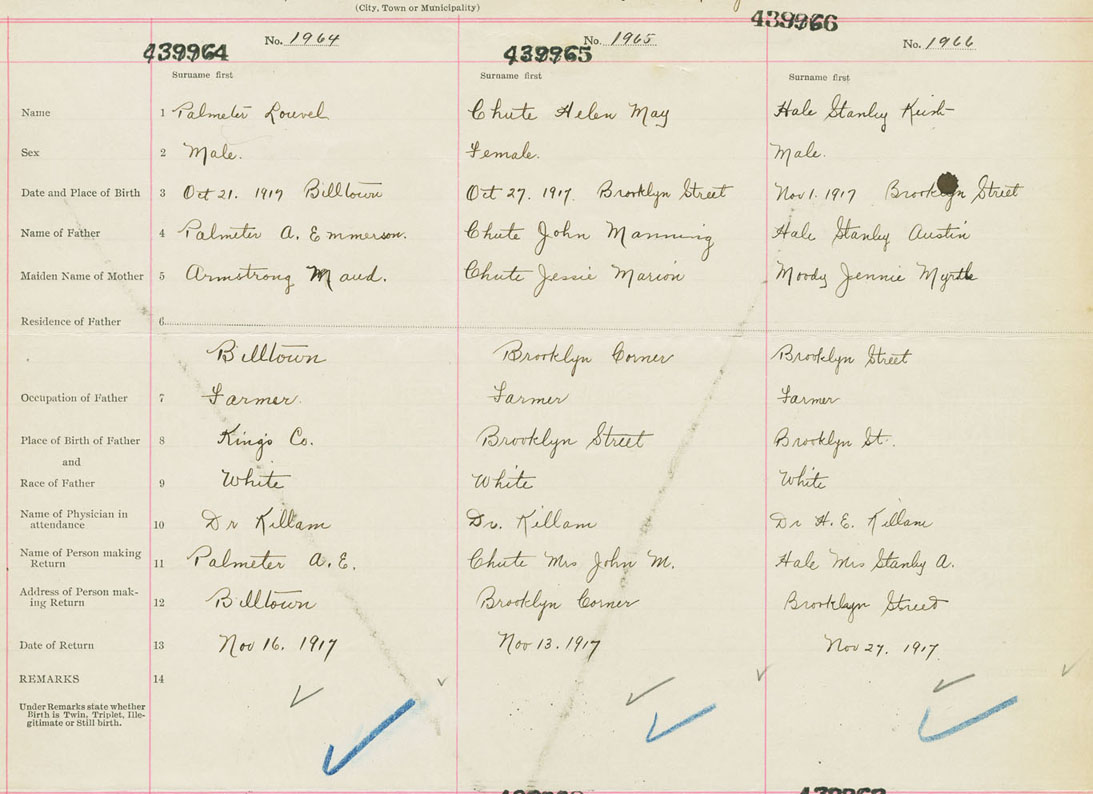 (City, Town or Municipality)
439964 No. 1964 439965 No. 1965 439966 No. 1966
Surname first Surname first Surname first
Name 1 Palmeter Louvel Chute Helen May Hale Stanley
Sex 2 Male. Female. Male.
Date and Place of Birth 3 Oct 21. 1917 Billtown Oct 27. 1917. Brooklyn Street Nov 1. 1917 Brooklyn Street
Name of Father 4 Palmeter A. Emmerson. Chute John Manning Hale Stanley Austin
Maiden Name of Mother 5 Armstrong Maud. Chute Jessie Marion Moody Jennie Myrtle
Residence of Father 6
Billtown Brooklyn Corner Brooklyn Street
Occupation of Father 7 Farmer. Farmer Farmer
Place of Birth of Father 8 Kings Co. Brooklyn Street Brooklyn St.
and
Race of Father 9 White White White
Name of Physician in
attendance 10 Dr Killam Dr. Killam Dr H. E. Killam
Name of Person making
Return 11 Palmeter A. E. Chute Mrs John M. Hale Mrs Stanley A.
Address of Person mak-
ing Return 12 Billtown Brooklyn Corner Brooklyn Street
Date of Return 13 Nov 16. 1917 Nov 13. 1917 Nov 27. 1917
REMARKS 14
Under Remarks state whether
Birth is Twin, Triplet, Ille-
gitimate or Still birth.